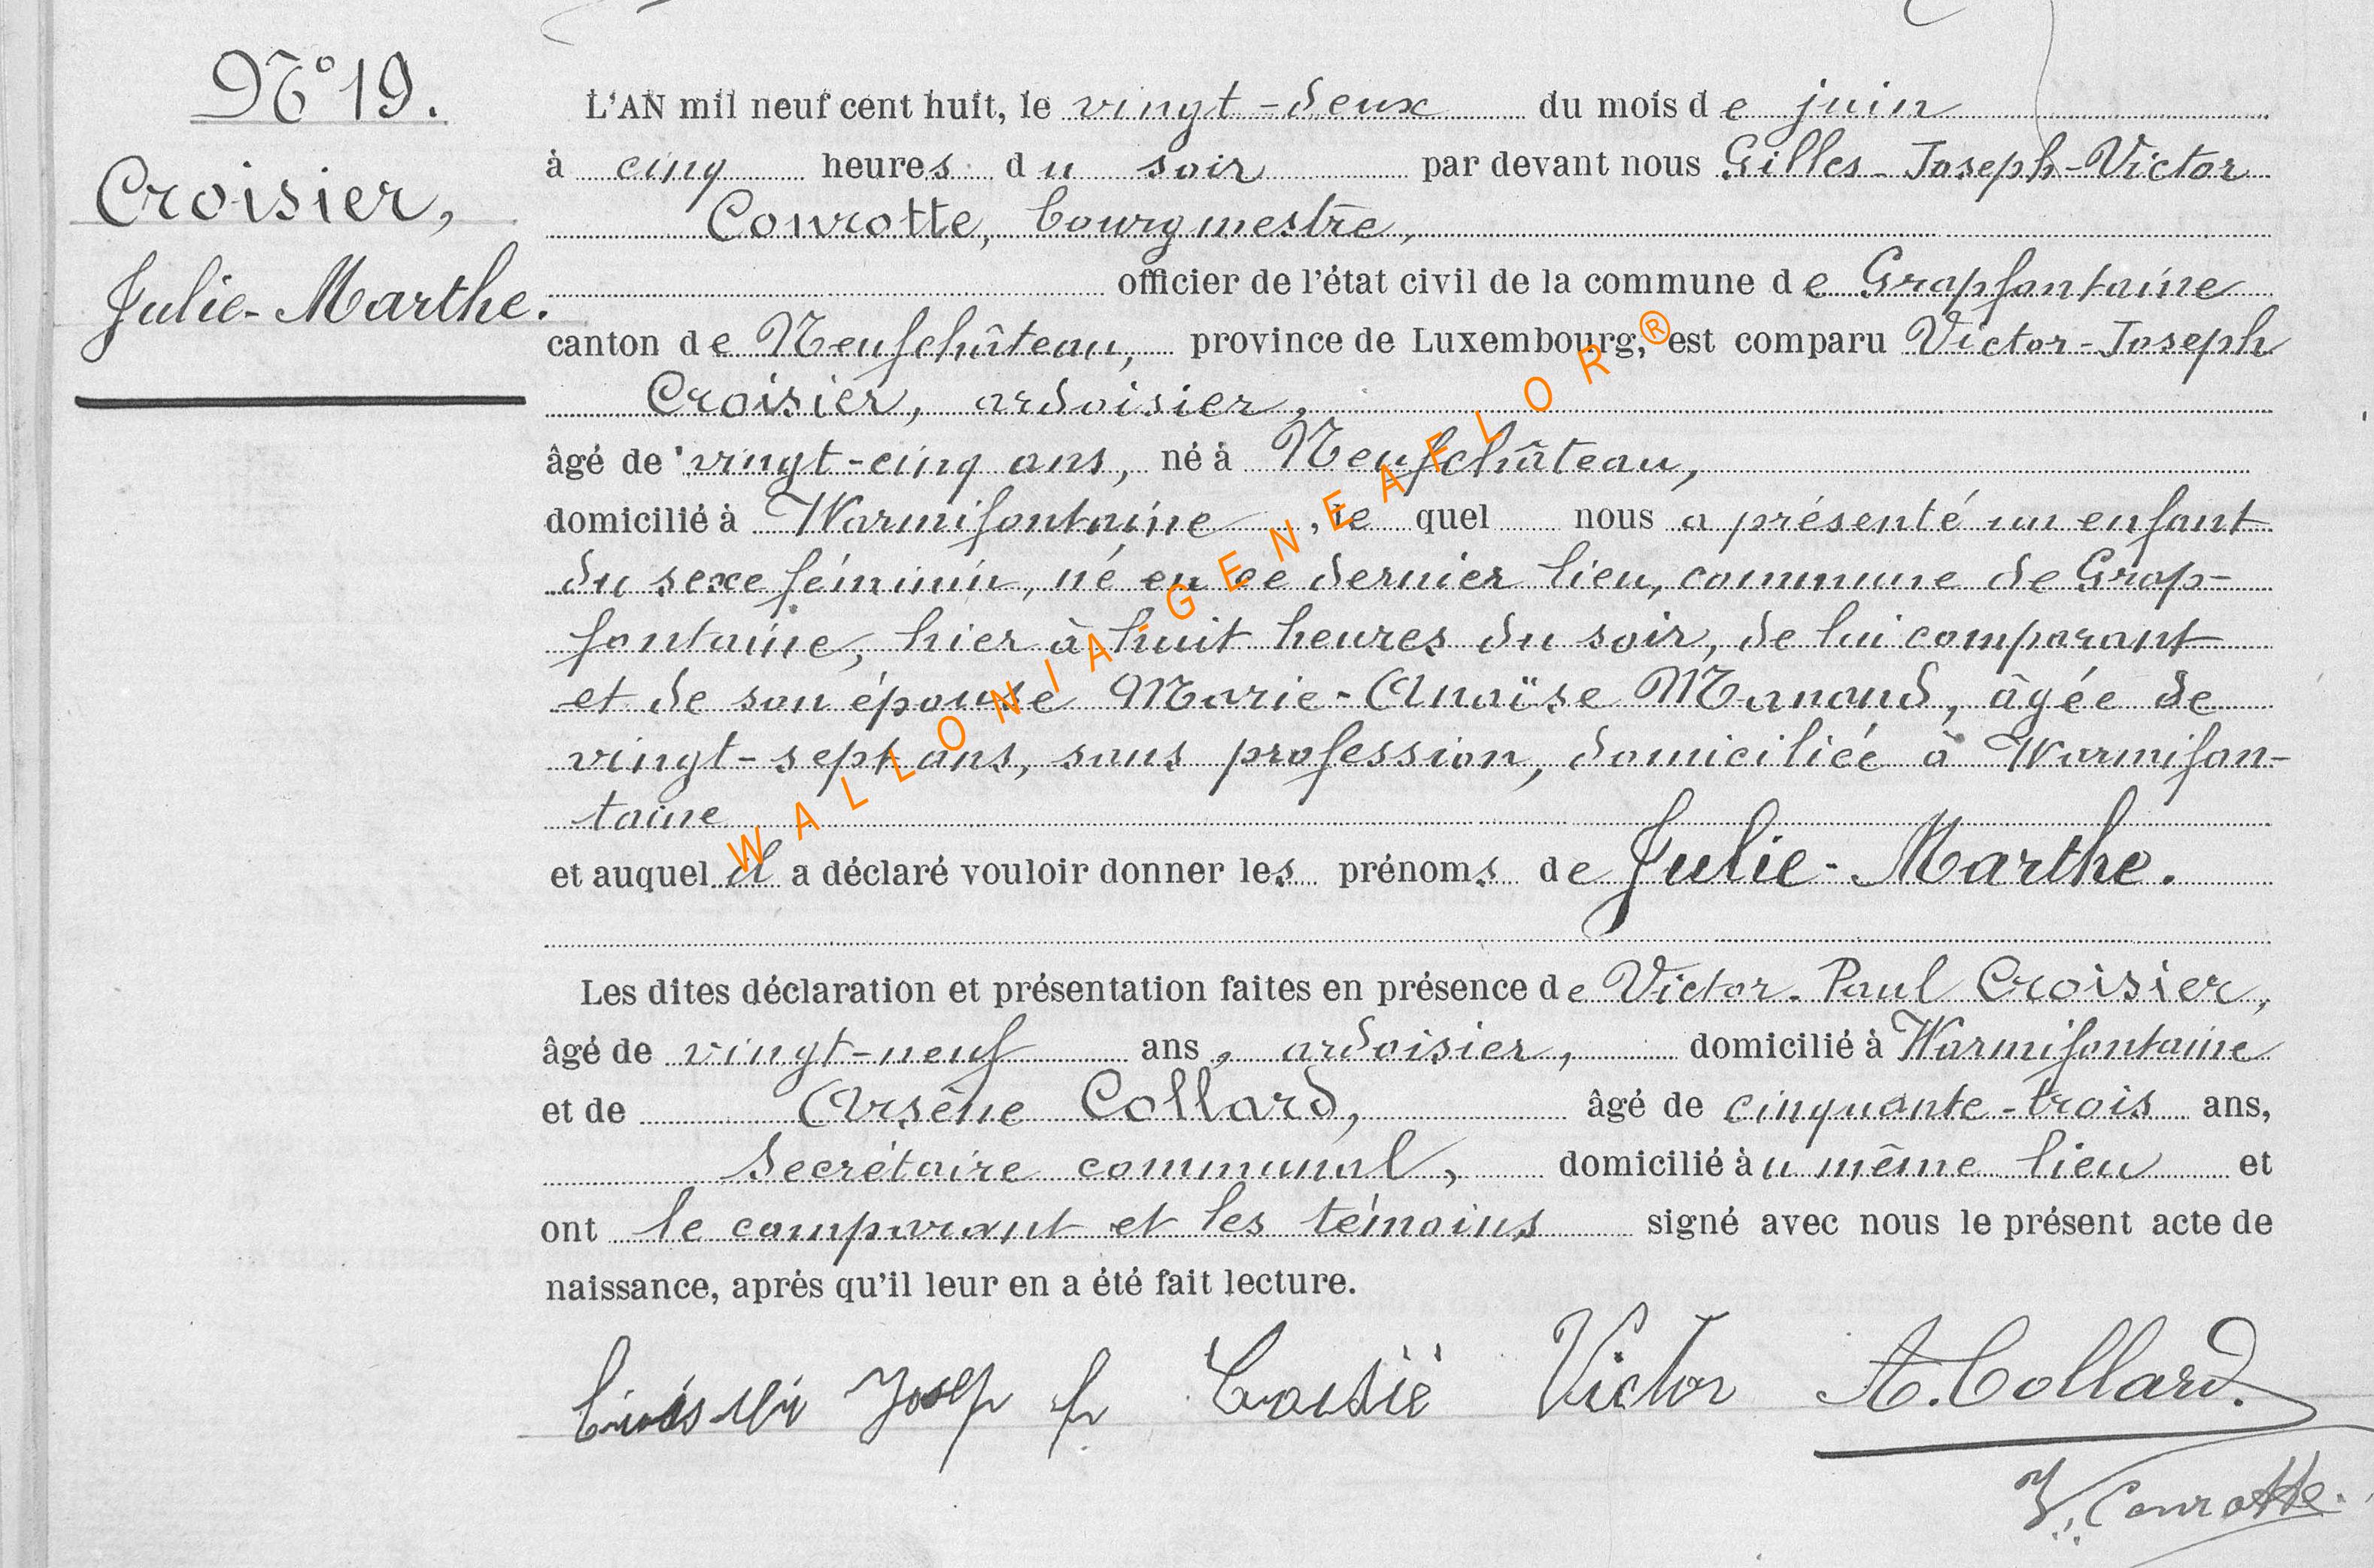 N° 19.
Croisier,
Julie-Marthe.
L'AN mil neuf cent huit, le vingt-deux du mois de juin
à cinq heures du soir par devant nous Gilles-Joseph-Victor
Conrotte, bourgmestre,
officier de l'état civil de la commune de Grapfontaine
canton de Neufchâteau, province de Luxembourg, est comparu Victor-Joseph
Croisier, ardoisier,
âgé de vingt-cinq ans, né à Neufchâteau,
domicilié à Warmifontaine, le quel nous a présenté un enfant
du sexe féminin, né en ce dernier lieu, commune de Grap-
fontaine, hier à huit heures du soir, de lui comparant
et de son épouse Marie-Anaïse Manand, âgée de
vingt-sept ans, sans profession, domiciliée à Warmifon-
taine
et auquel il a déclaré vouloir donner les prénoms de Julie-Marthe.
Les dites déclaration et présentation faites en présence de Victor-Paul Croisier,
âgé de vingt-neuf ans, ardoisier, domicilié à Warmifontaine
et de Arsène Collard, âgé de cinquante-trois ans,
secrétaire communal, domicilié au même lieu et
ont le comparant et les témoins signé avec nous le présent acte de
naissance, après qu'il leur en a été fait lecture.
Joseph Victor A. Collard.
V. Conrotte.
WALLONIA-GENEAFLOR®